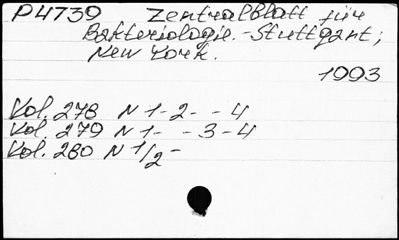 P4739 Zentralblatt für
Bakteriologie.-Stuttgart;
New York.
1993
Vol. 278 N 1-2- -4
Vol. 279 N 1- -3-4
Vol. 280 N 1/2-